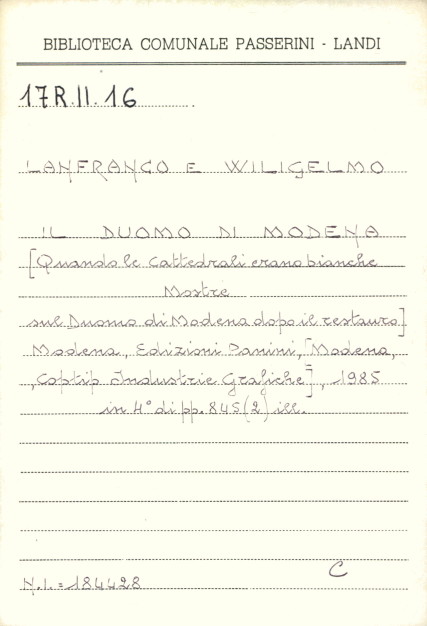 BIBLIOTECA COMUNALE PASSERINI - LANDI
17R.II.16
LANFRANCO E WILIGELMO
IL DUOMO DI MODENA
[Quando le cattedrali erano bianche
Mostre
sul Duomo di Modena dopo il restauro]
Modena, Edizioni Panini, [Modena,
Coptip Industrie Grafiche], 1985
in 4° di pp. 845(2) ill.
C
N.I.=184428